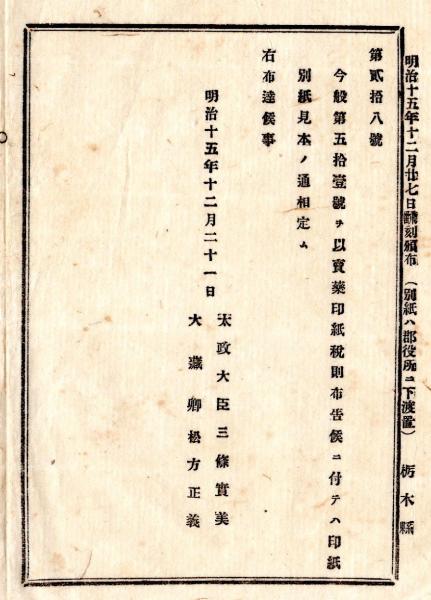 明治十五年十二月廿七日飜刻頒布 (別紙ハ郡役所ニ下渡置) 栃木縣
第貳拾八號
今般第五拾壹號ヲ以賣藥印紙稅則布告候ニ付テハ印紙
別紙見本ノ通相定ム
右布達候事
明治十五年十二月二十一日
太政大臣三條實美
大藏卿松方正義